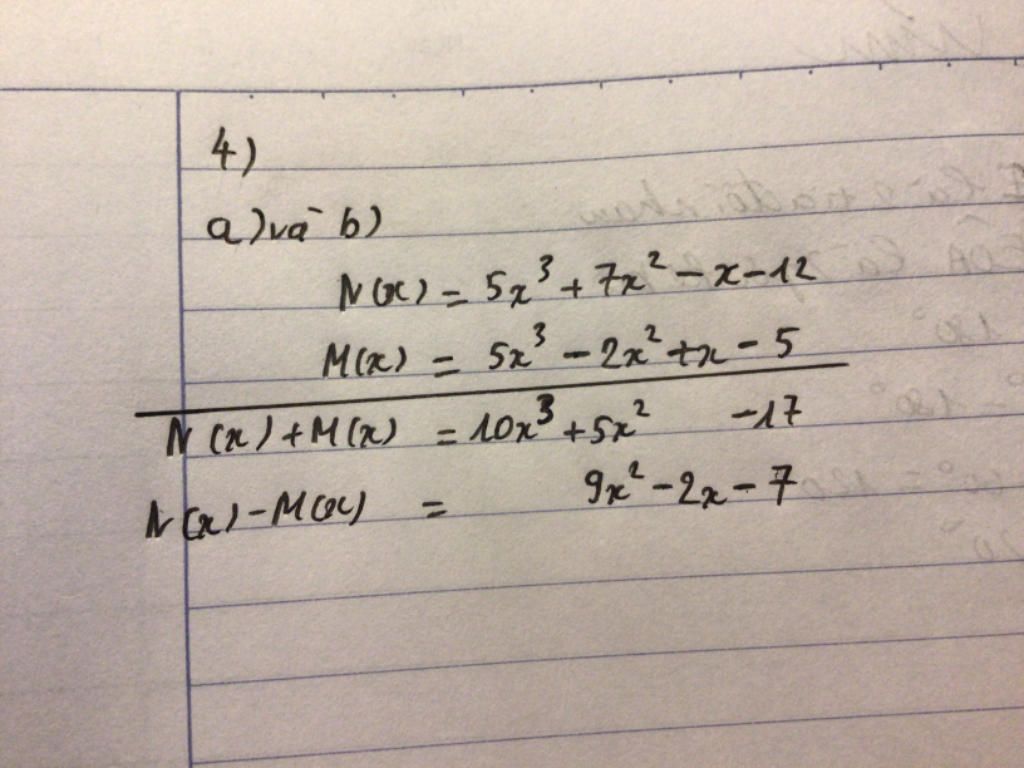 4)
a) và b)
N(x) = 5x³ + 7x² - x - 12
M(x) = 5x³ - 2x² + x - 5
N(x) + M(x) = 10x³ + 5x² - 17
N(x) - M(x) = 9x² - 2x - 7